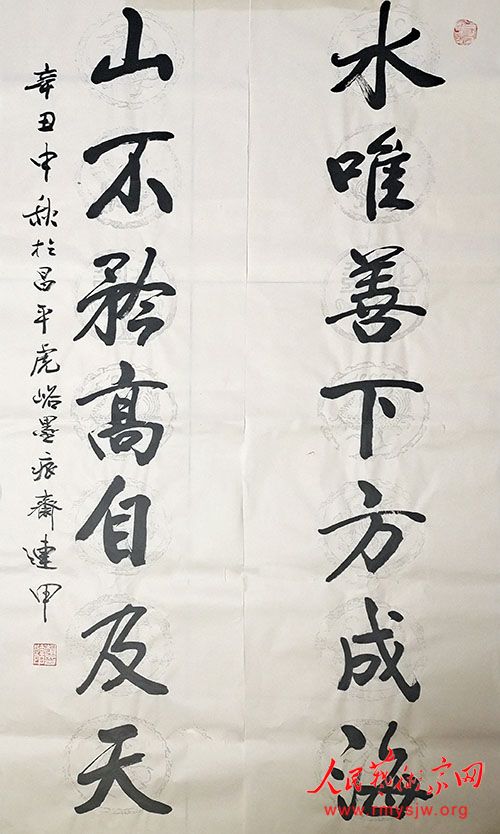 水唯善下方成海
山不矜高自及天
辛丑中秋於昌平虎峪墨痕齋建甲
人民艺术家网
www.rmysjw.org